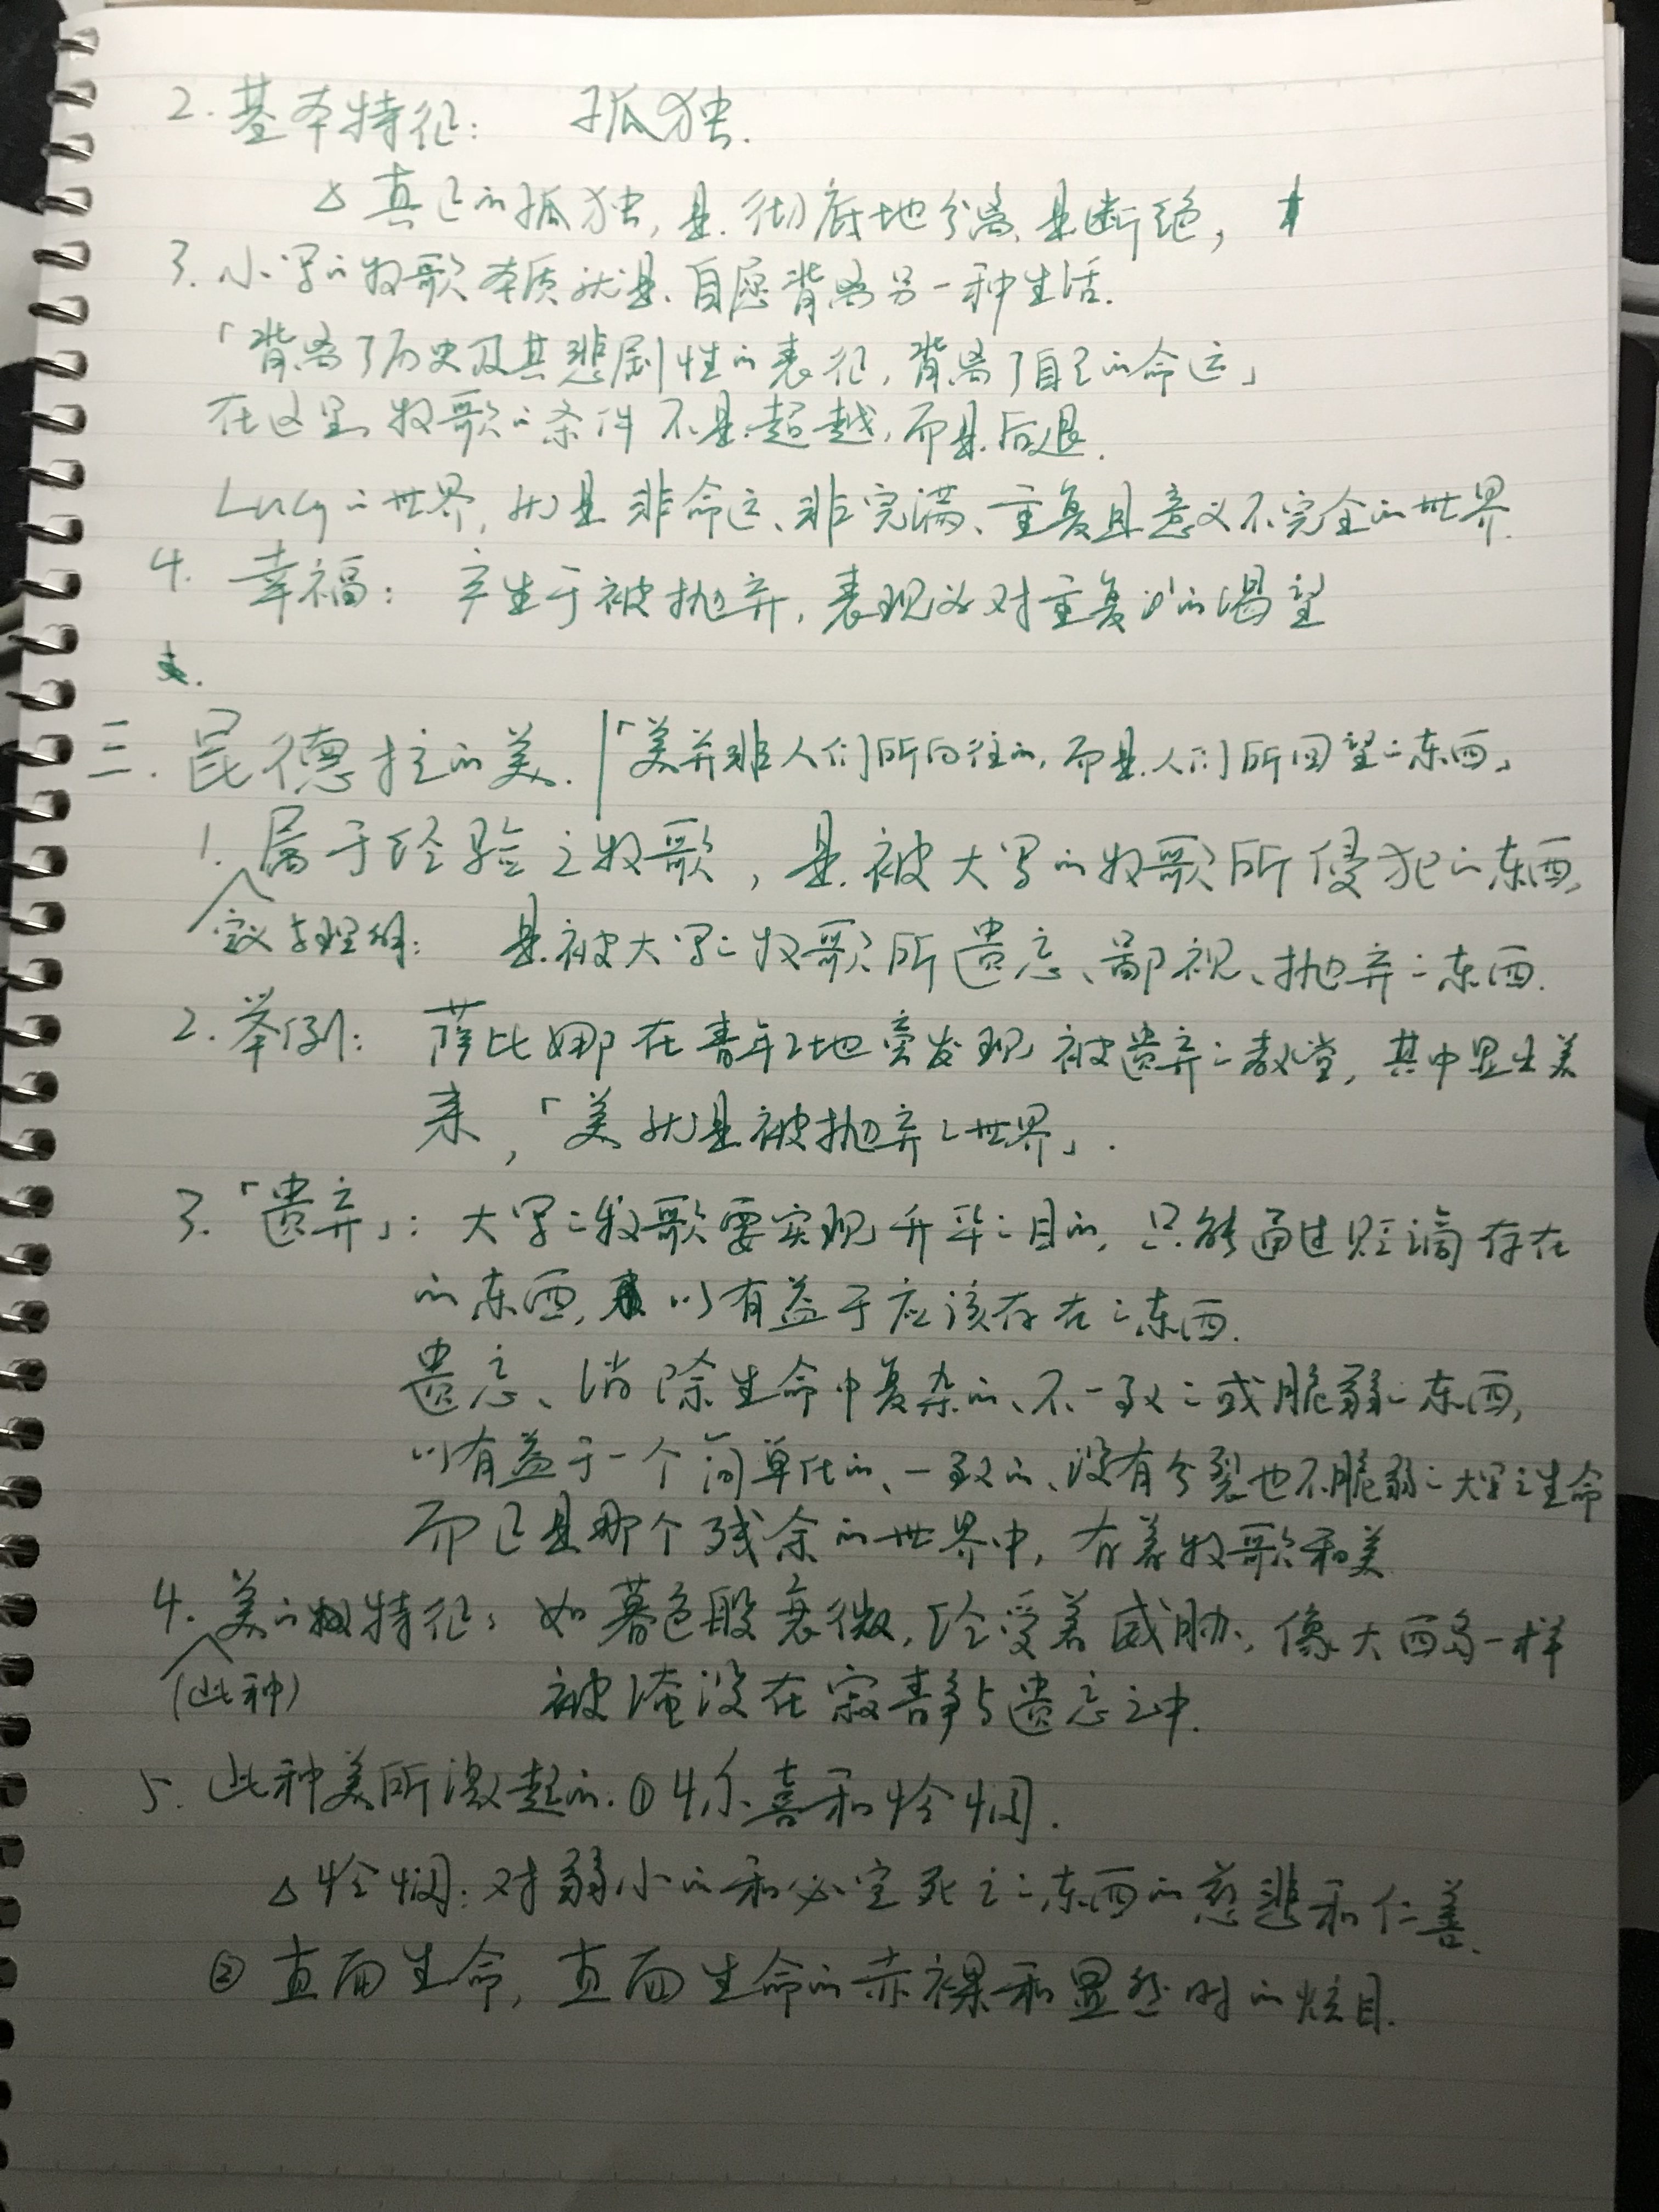 2. 基本特征： 孤独.
△ 真正的孤独, 是彻底地分离、是断绝,
3. 小写的牧歌本质就是自愿背离另一种生活.
「背离了历史及其悲剧性的表征, 背离了自己的命运」
在这里, 牧歌的条件不是超越, 而是后退.
Lucy的世界, 就是非命运、非完满、重复且意义不完全的世界.
4. 幸福： 产生于被抛弃, 表现为对重复的渴望
三. 昆德拉的美. 「美并非人们所向往的, 而是人们所回望的东西」
1. 属于经验之牧歌, 是被大写的牧歌所侵犯的东西,
定义与理解： 是被大写的牧歌所遗忘、鄙视、抛弃的东西.
2. 举例： 萨比娜在青年工地旁发现被遗弃的教堂, 其中显出美
来, 「美就是被抛弃的世界」.
3.「遗弃」: 大写的牧歌要实现升华的目的, 只能通过贬谪存在
的东西, 以有益于应该存在的东西.
遗忘、消除生命中复杂的、不一致的或脆弱的东西,
以有益于一个简单化的、一致的、没有分裂也不脆弱的大写之生命
而正是那个残余的世界中, 存着牧歌和美
4. 美的特征： 如暮色般衰微, 经受着威胁, 像大西岛一样
(此种) 被淹没在寂静与遗忘之中.
5. 此种美所激起的. ① 惊喜和怜悯.
△ 怜悯: 对弱小的和必定死亡的东西的慈悲和仁善.
② 直面生命, 直面生命的赤裸和显然时的炫目.